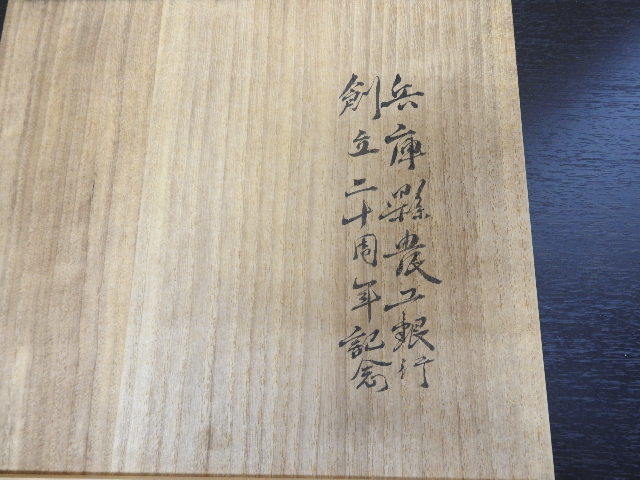 兵庫縣農工銀行
創立二十周年記念